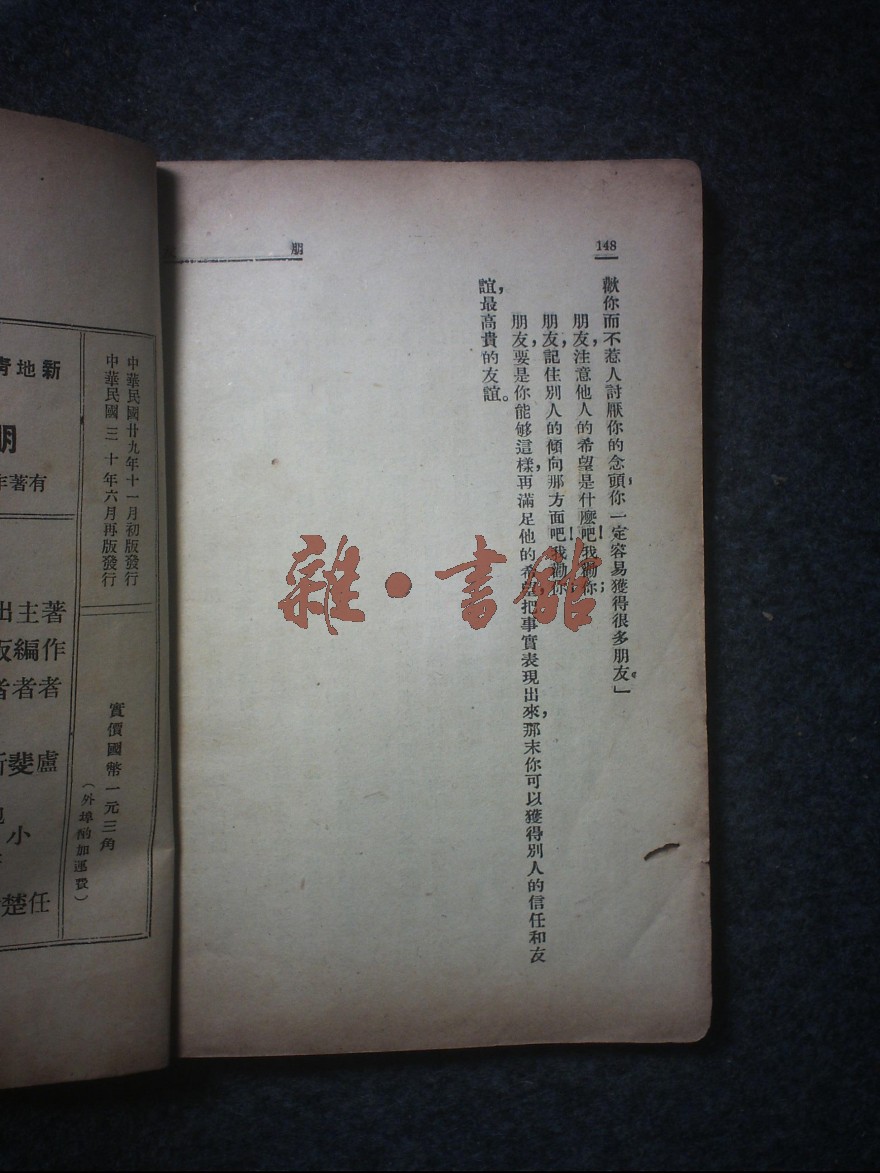 148
朋
歡你而不惹人討厭你的念頭，你一定容易獲得很多朋友。」
朋友，注意他人的希望是什麼吧！我勸你；
朋友，記住別人的傾向那方面吧！我勸你；
朋友，要是你能够這樣，再滿足他的希望，把事實表現出來，那末你可以獲得別人的信任和友
誼，最高貴的友誼。
雜·書館
中華民國廿九年十一月初版發行
中華民國三十年六月再版發行
實價國幣一元三角
（外埠酌加運費）
新地青
朋
有著作
著主出
作編版
者者者
盧斐
小
任楚